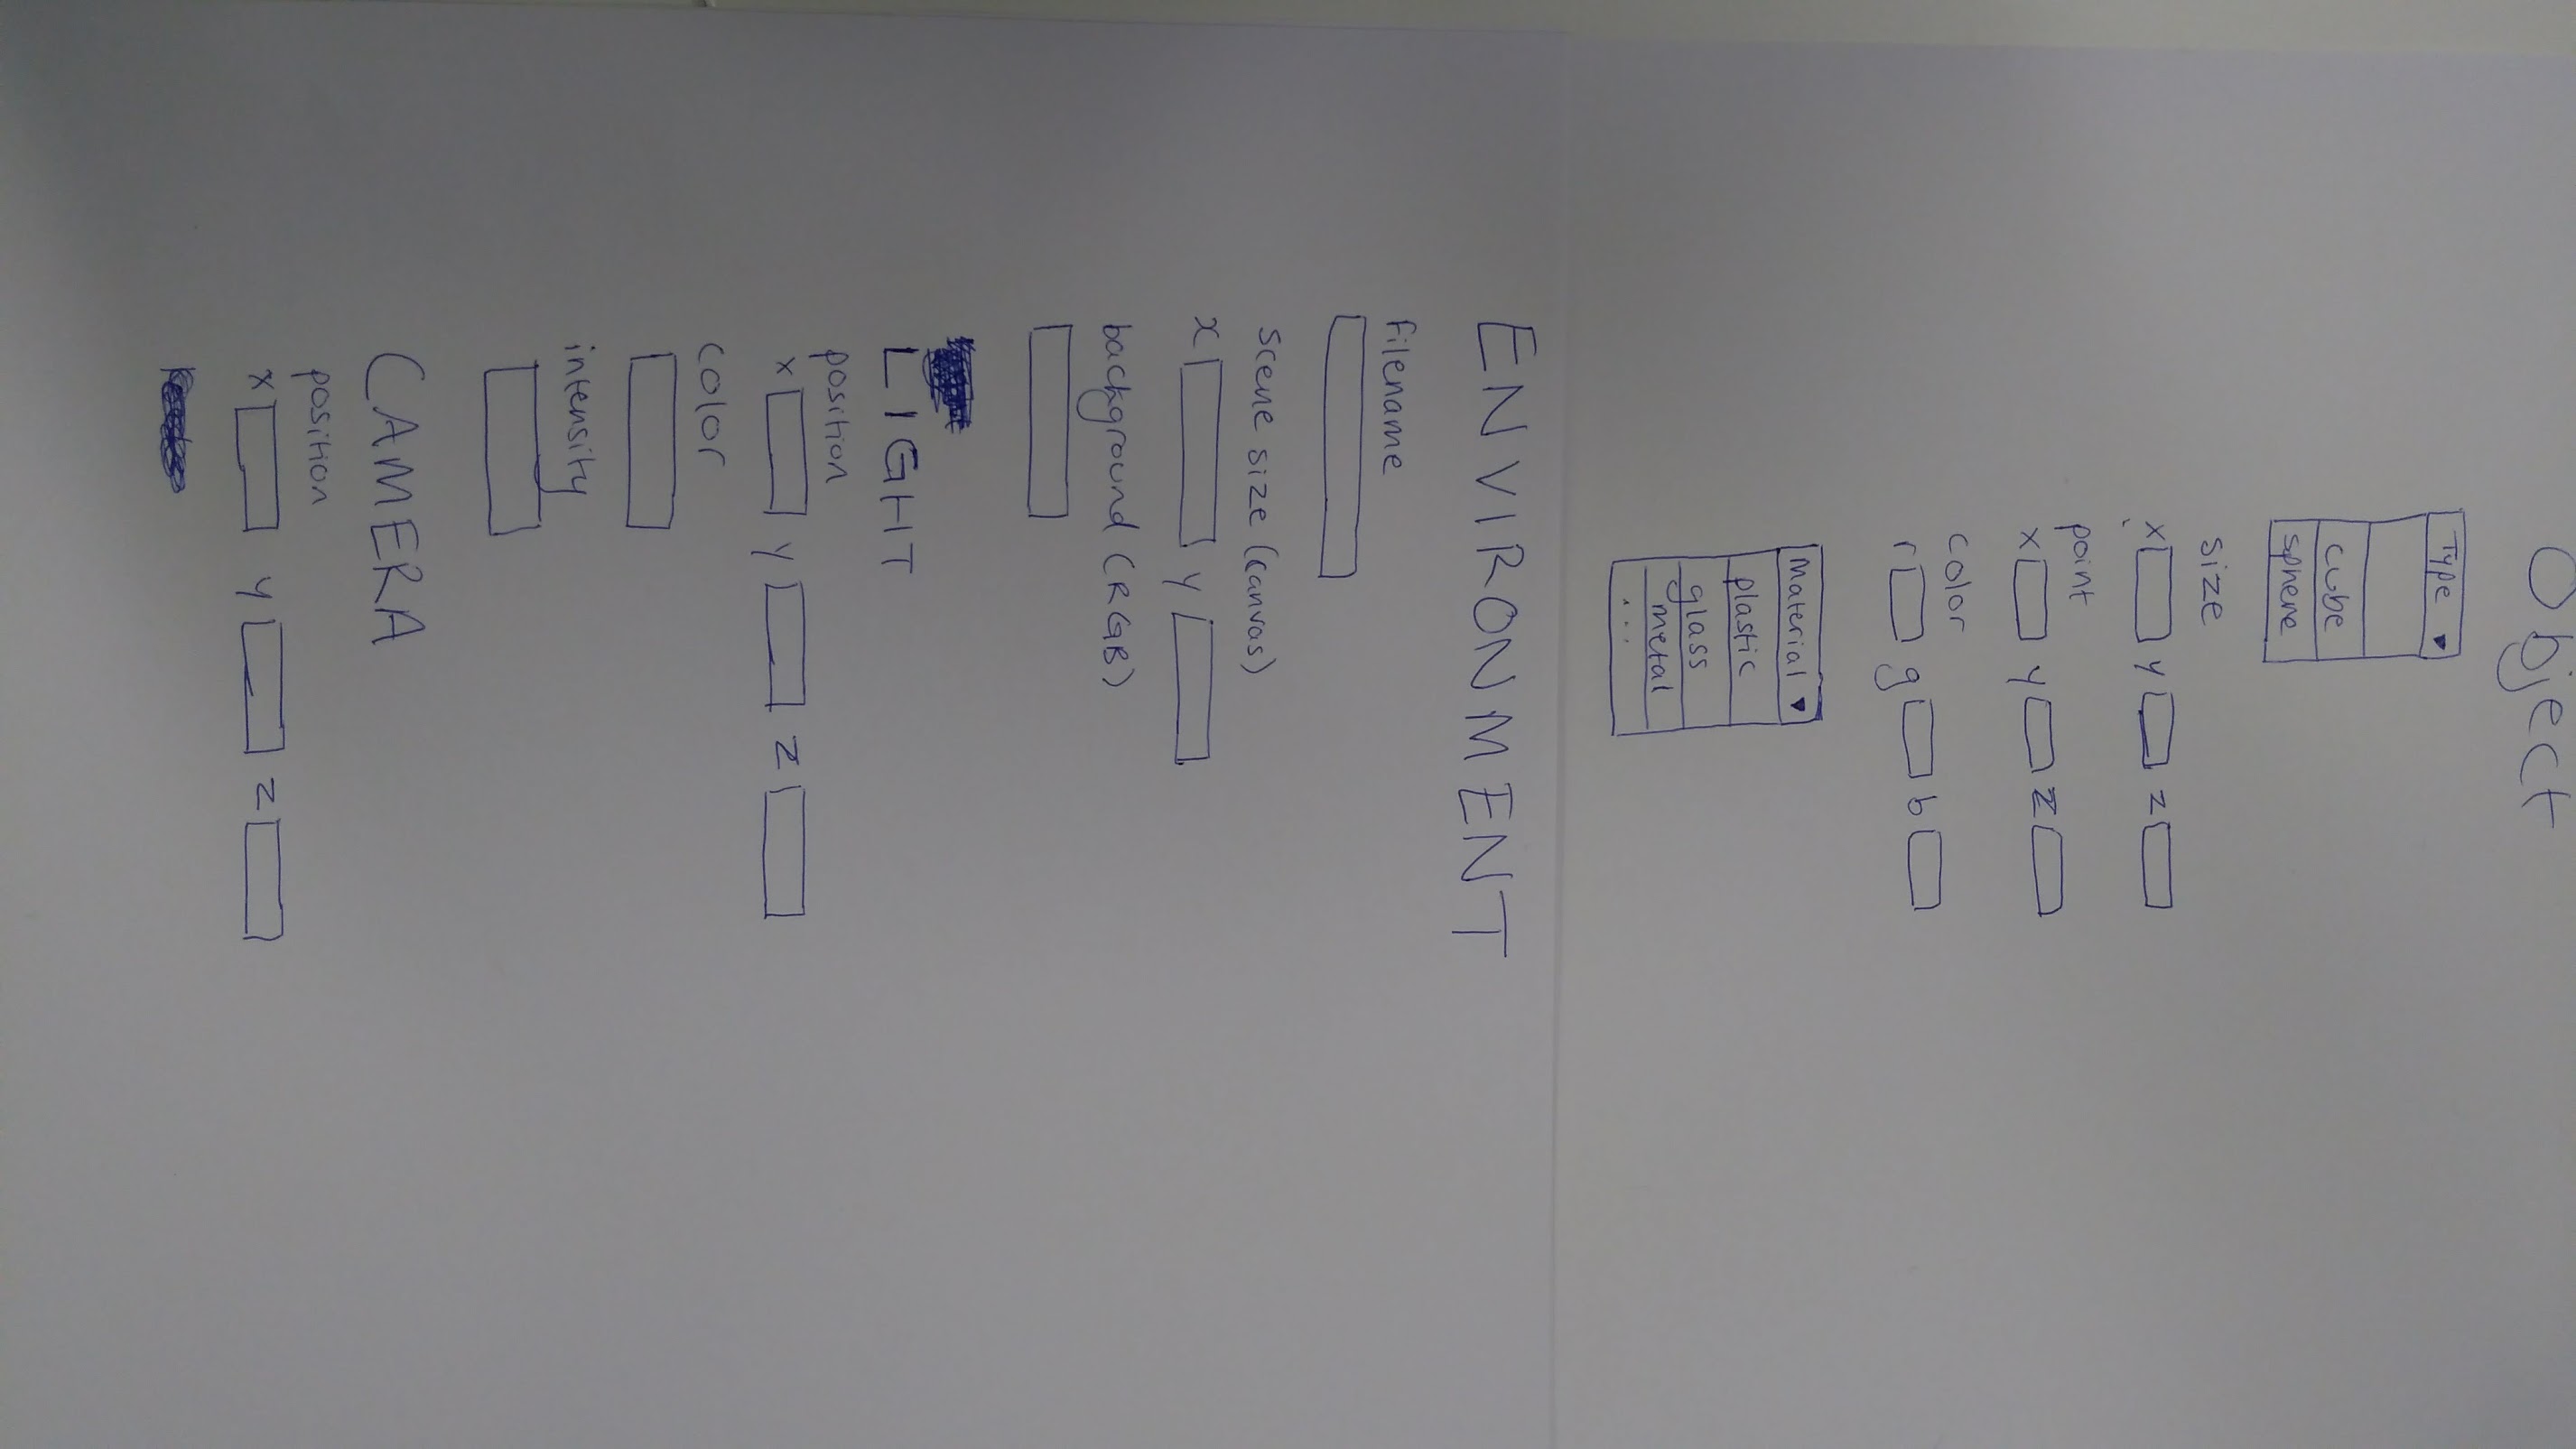 Object
Type
cube
sphere
size
x y z
point
x y z
color
r g b
Material
plastic
glass
metal
...
ENVIRONMENT
Filename
scene size (canvas)
x y
background (RGB)
LIGHT
position
x y z
color
intensity
CAMERA
position
x y z